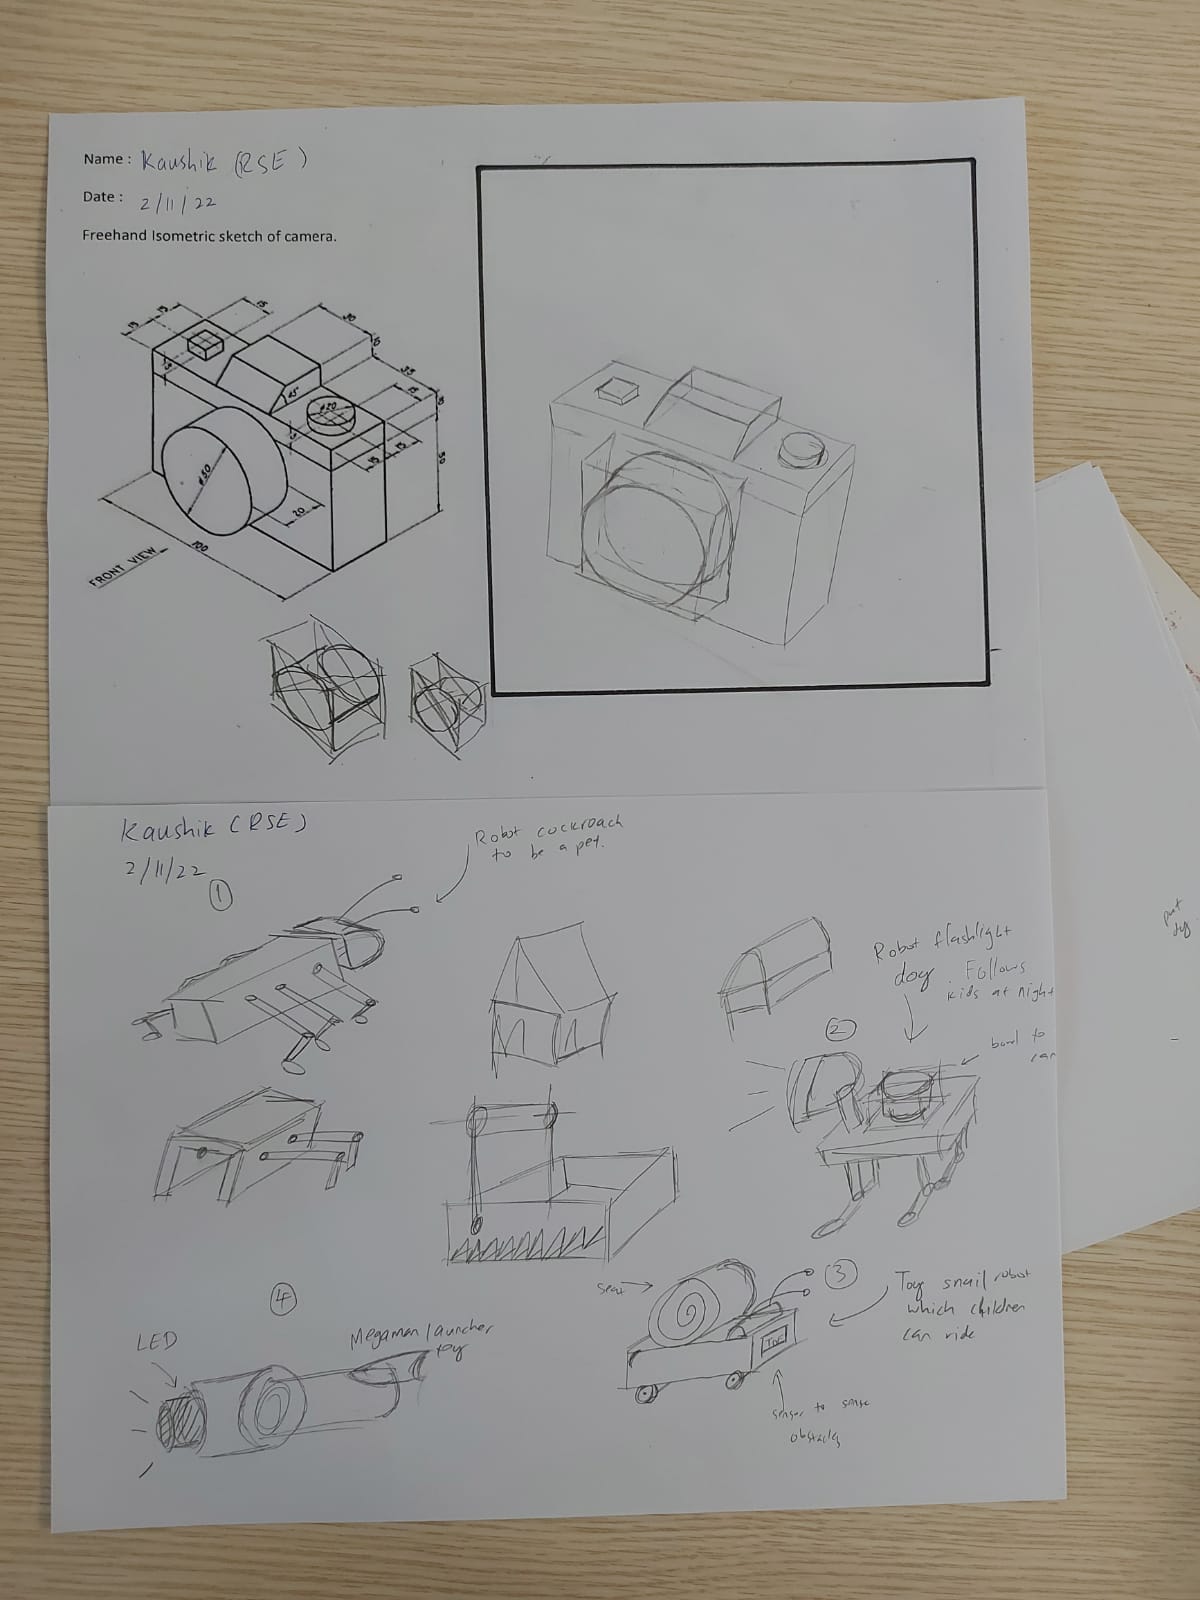 Name : Kaushik (RSE)
Date : 2/11/22
Freehand Isometric sketch of camera.
15
15
15
30
10
35
15
15
45°
ø20
15
15
50
ø50
20
100
FRONT VIEW
Kaushik (RSE)
2/11/22
1
Robot cockroach
to be a pet.
Robot flashlight
dog Follows
kids at night
2
bowl to
3
seat
Toy snail robot
which children
can ride
sensor to sense
obstacles
4
LED
Megaman launcher
toy